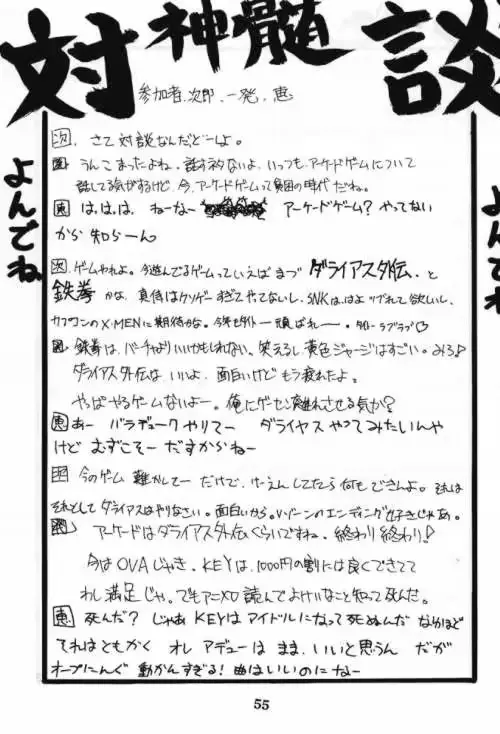 対神髄談
よんでね
よんでね
参加者.次郎.一発.恵
次. さて対談なんだどーしよ。
うんこまったよね、話すネタないよ、いっつもアーケードゲームについて
話してる気がするけど、今、アーケードゲームって貧困の時代だね。
恵 は、は、は、ねーなー アーケードゲーム? やってない
から知らーん
次. ゲームやれよ。今遊んでるゲームっていえばまづダライアス外伝、と
鉄拳かな、真侍はクソゲーすぎてやてないし、SNKははよツブれて欲しいし、
カプコンのX-MENに期待かな。今年もタイトー頑ばれー。タイトーラブラブ♡
鉄拳は、バーチャよりいいかもしれない。笑えるし黄色ジャージはすごい。みろ♪
ダライアス外伝はいいよ、面白いけどもう疲れたよ。
やっぱやるゲームないよー。俺にゲーセン離れさせる気か?
恵 あー バラデュークやりてー ダライヤスやってみたいんや
けど むずこそー だすからねー
今のゲーム難かしてー だけで、けーえんしてたら何もできんよ。それは
それとしてダライアスはやりなさい。面白いから。Vゾーンのエンディング好きじゃあ。
アーケードはダライアス外伝くらいですね、終わり終わり♪
今はOVAじゃき、KEYは、1000円の割には良くできてて
わし満足じゃ。でもアニメV読んでよけいなこと知って死んだ。
恵. 死んだ? じゃあKEYはアイドルになって死ぬんだ なるほど
それはともかく オレ アデューは まま、いいと思うん だが
オープにんぐ 動かんすぎる! 曲はいいのに なー
55